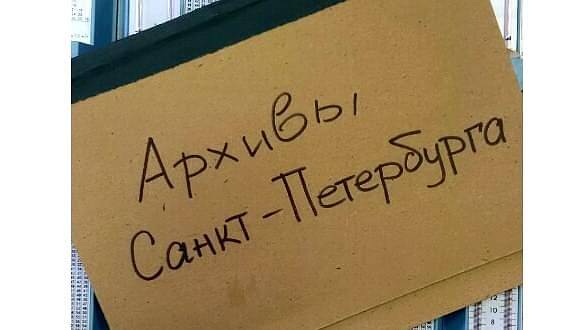 Архивы
Санкт-Петербурга